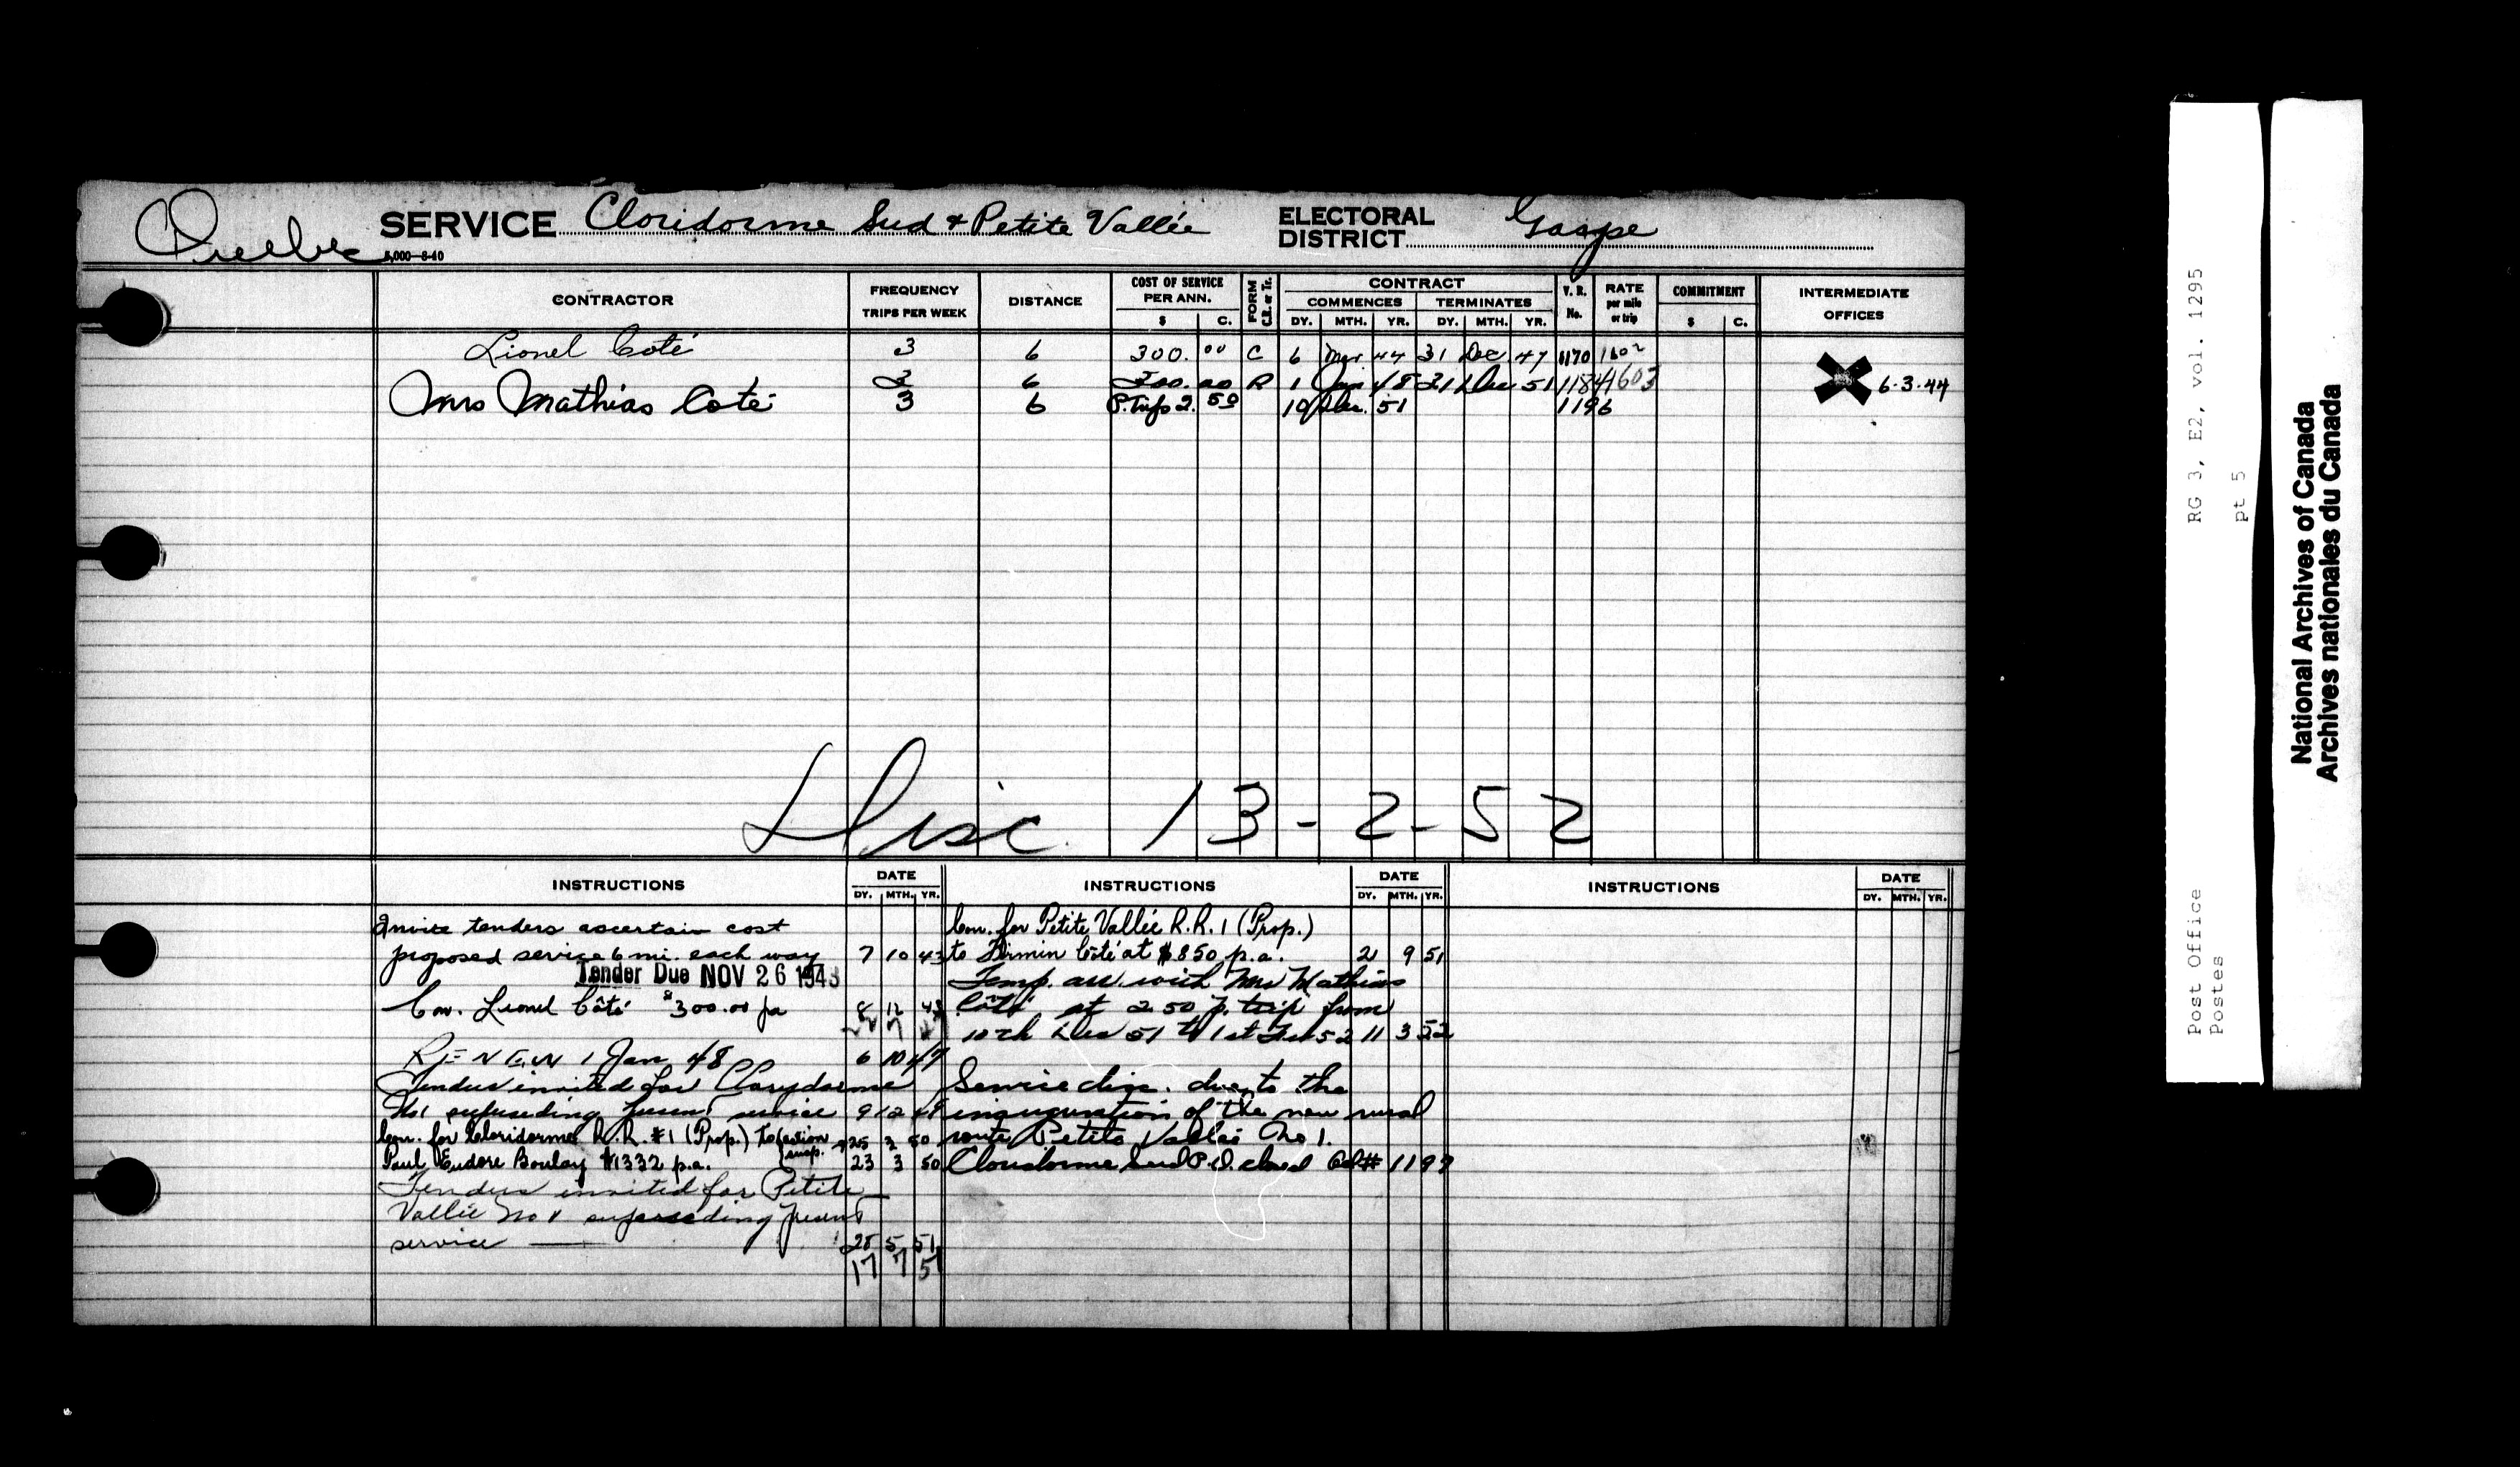 Quebec SERVICE Cloridorme Sud & Petite Vallée ELECTORAL DISTRICT Gaspe
5,000—8-40
CONTRACTOR FREQUENCY TRIPS PER WEEK DISTANCE COST OF SERVICE PER ANN. $ C. FORM C.R. or Tr. CONTRACT COMMENCES DY. MTH. YR. TERMINATES DY. MTH. YR. V. R. No. RATE per mile or trip COMMITMENT $ C. INTERMEDIATE OFFICES
Lionel Coté 3 6 300. 00 C 6 Mar 44 31 Dec 47 1170 1602
3 6 300. 00 R 1 Jan 48 31 Dec 51 1184 1603 6-3-44
Mrs Mathias Coté 3 6 P. trip 2. 50 10 Dec. 51 1196
Disc. 13-2-52
INSTRUCTIONS DATE DY. MTH. YR. INSTRUCTIONS DATE DY. MTH. YR. INSTRUCTIONS DATE DY. MTH. YR.
Invite tenders ascertain cost
proposed service 6 mi. each way 7 10 43
Tender Due NOV 26 1943
Con. Lionel Côté $300.00 pa 8 12 43
RENEW 1 Jan 48 6 10 47
Tenders invited for Clorydorme
No 1 superseding present service 9 12 49
Con. for Cloridorme R.R. #1 (Prop.) to 25 2 50
Paul Eudore Boulay $1332 p.a. 23 3 50
Tenders invited for Petite
Vallée No 1 superseding present
service — 25 5 51
17 7 5
Con. for Petite Vallée R.R. 1 (Prop.)
to Firmin Côté at $850 p.a. 21 9 51
Temp. arr. with Mrs Mathias
Côté at 2.50 p. trip from
10th Dec 51 to 1st Feb 52 11 3 52
Service disc. due to the
inauguration of the new rural
route Petite Vallée No 1.
Cloridorme Sud P.O. closed 1197
RG 3, E2, vol. 1295
pt 5
Post Office
Postes
National Archives of Canada
Archives nationales du Canada